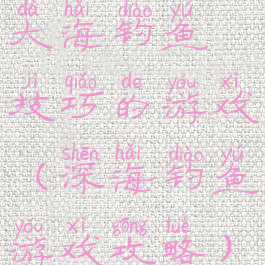 dà hǎi diào yú
大海钓鱼
jì qiǎo de yóu xì
技巧的游戏
shēn hǎi diào yú
（深海钓鱼
yóu xì gōng lüè
游戏攻略）